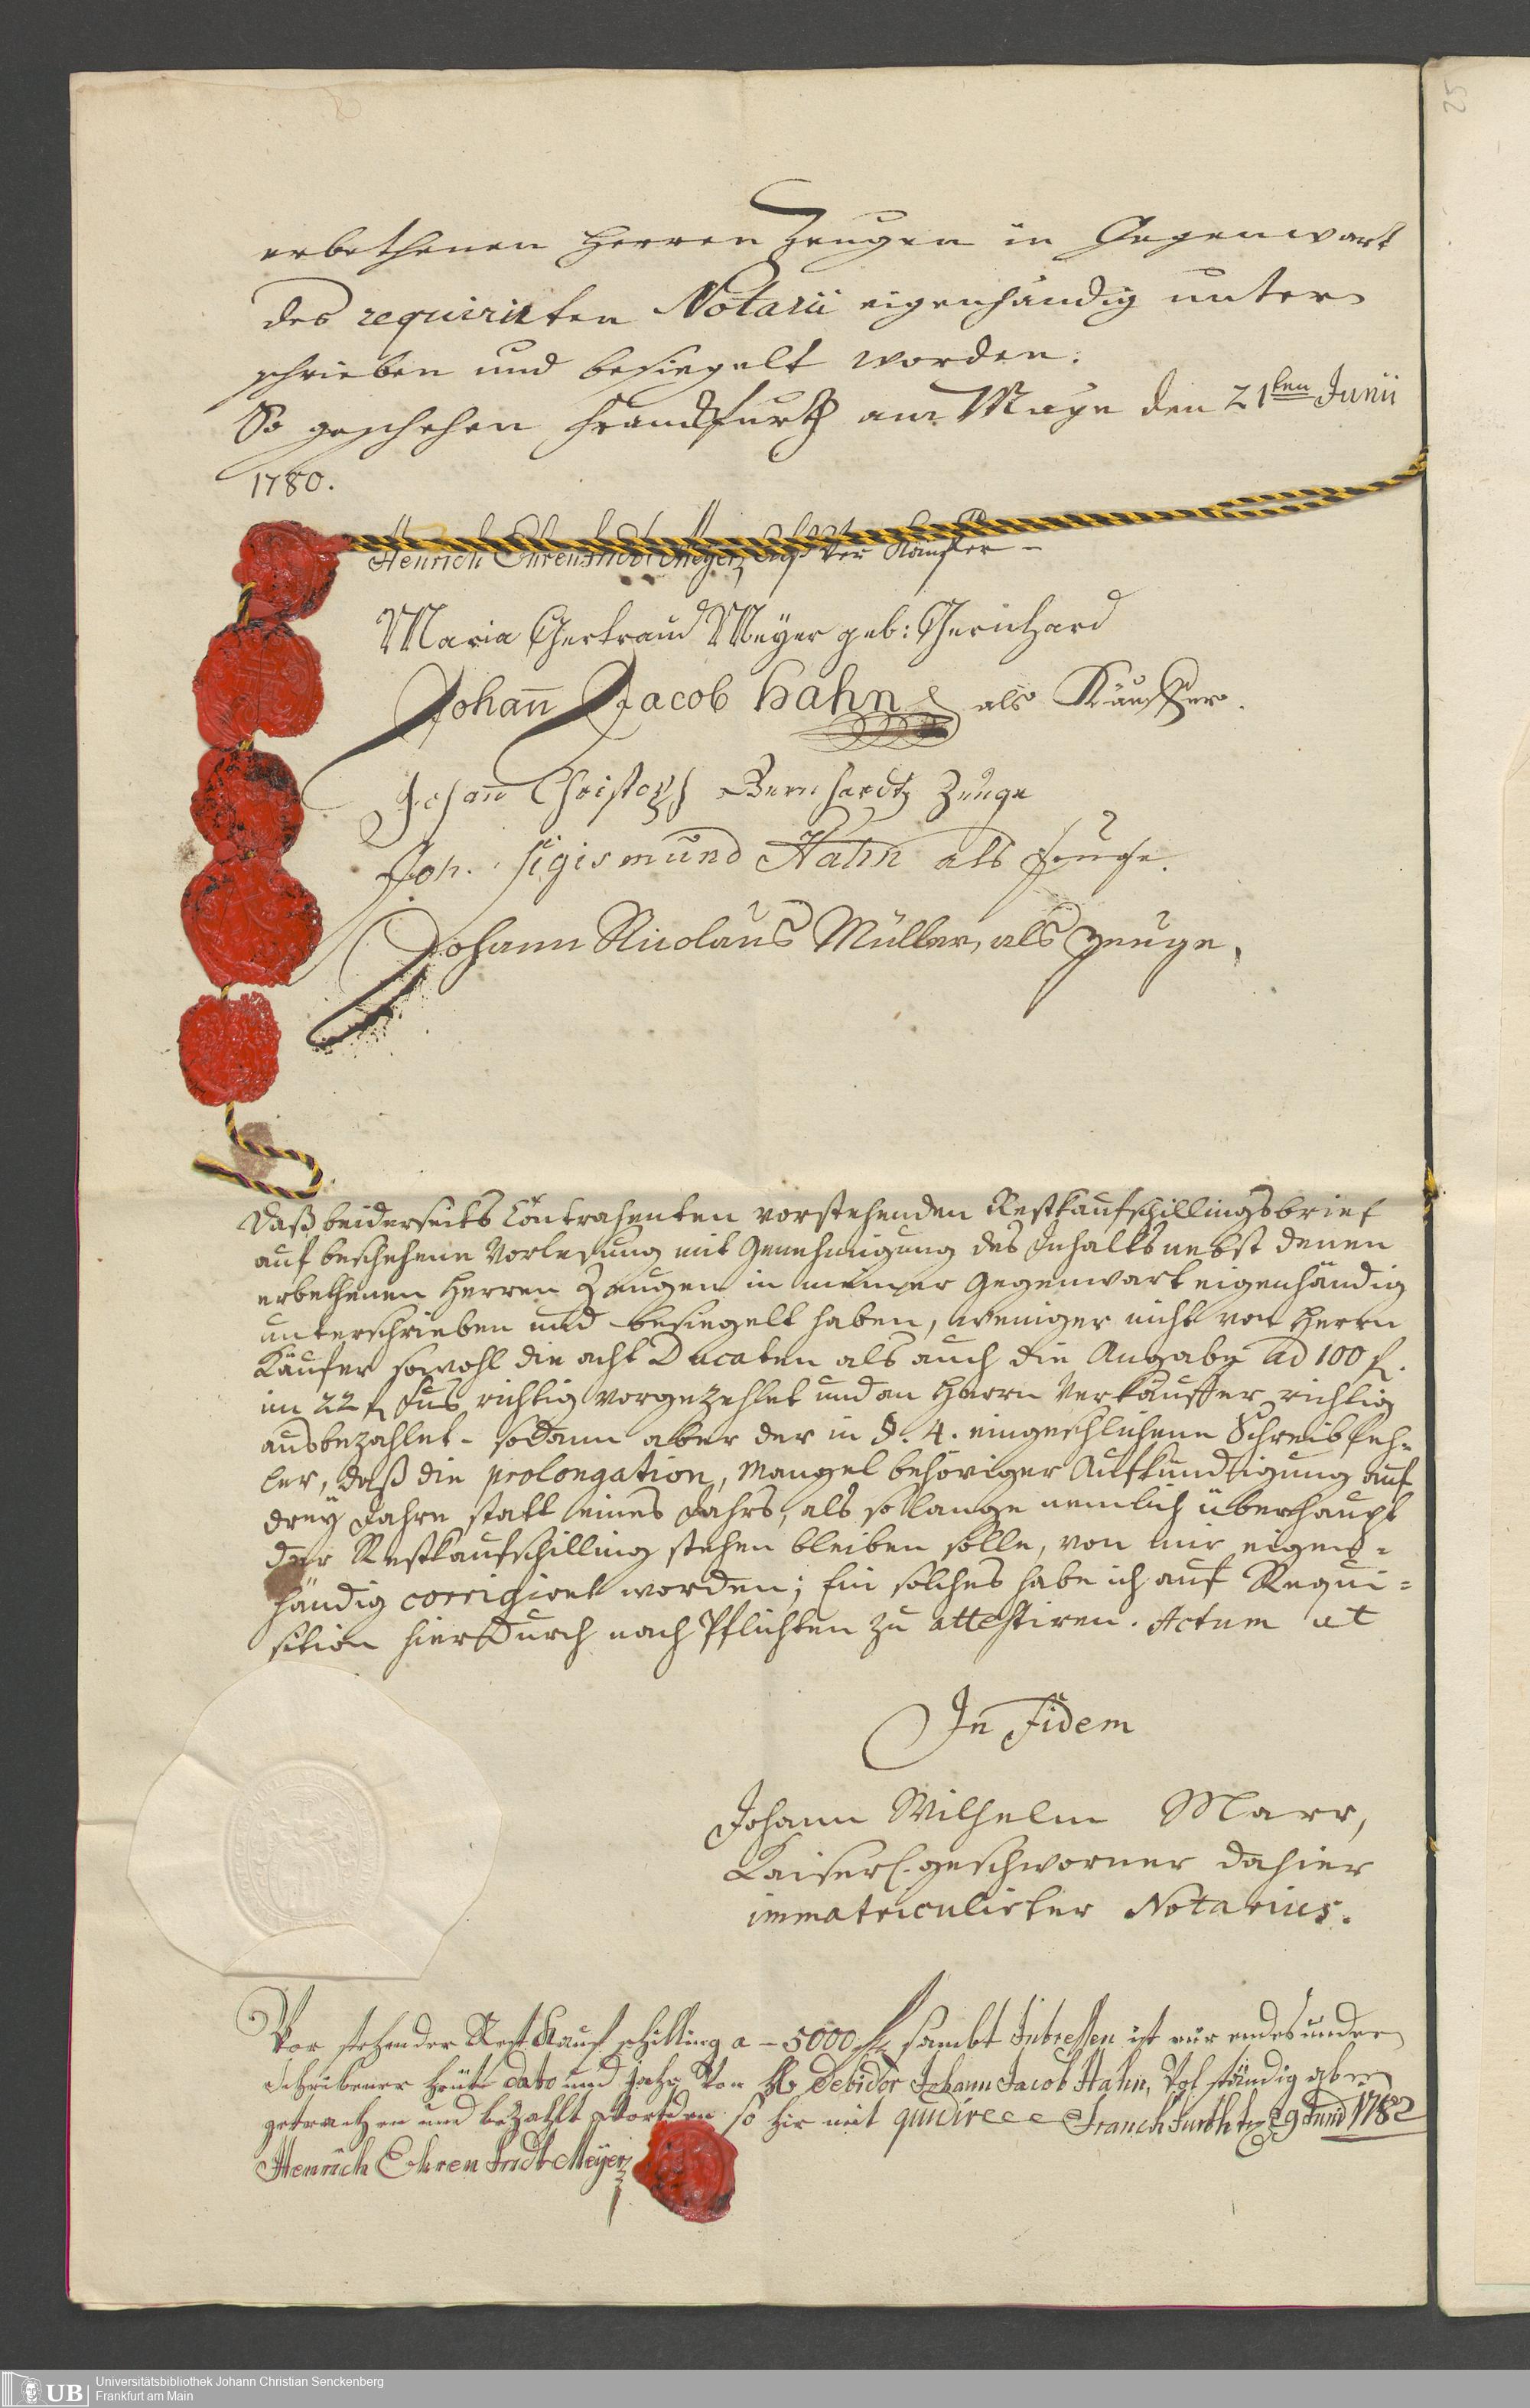 25
erbethenen Herren Zeugen in Gegenwart
des requirirten Notarii eigenhändig unter
schrieben und besiegelt worden.
So geschehen Franckfurth am Mayn den 21ten Junii
1780.
Henrich Ehrenfridt Meyer, Alß Ver Käufer
Maria Gertraud Meÿer geb: Gerichard
Johan̄ Jacob Hahn als Käuffer.
Johan̄ Christoph Bernhardt Zeuge
Joh. Sigismund Hahn als Zeuge.
Johann Nicolaus Müller, als Zeuge,
Daß beiderseits Contrahenten vorstehenden Restkaufschillingsbrief
auf beschehene Vorlesung mit Genehmigung des Inhalts nebst denen
erbethenen Herren Zeugen in meiner Gegenwart eigenhändig
unterschrieben und besiegelt haben, weniger nicht von Herrn
Käufer sowohl die acht Ducaten als auch die Angabe ad 100 f.
im 22 f Fus richtig vorgezehlet und an Herrn Verkäuffer richtig
ausbezahlet - sodann aber der in §. 4. eingeschlichene Schreibfeh=
ler, daß die prolongation, Mangel behöriger Aufkündigung auf
dreÿ Jahre statt eines Jahrs, als so lange nemlich überhaupt
der Restkaufschilling stehen bleiben solle, von mir eigen=
händig corrigiret worden; Ein solches habe ich auf Requi=
sition hierdurch nach Pflichten zu attestiren. Actum ut
In Fidem
Johann Wilhelm Marx,
Kaiserl. geschworner dahier
immatriculirter Notarius.
Vor stehender Rest Kauf schilling a - 5000 f sambt Intressen ist mir endes under
schribener heute dato und von H Debidor Johann Jacob Hahn, Vol ständig aber
getrachen und bezahlt worden so hir mit quidire Franckfurth d 29 Junÿ 1782
Henrich Ehrenfridt Meÿer
UB
Universitätsbibliothek Johann Christian Senckenberg
Frankfurt am Main